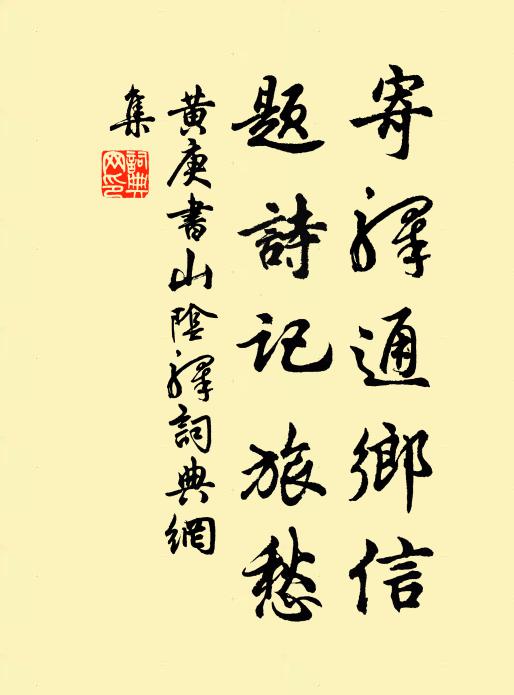 寄驛通鄉信
題詩記旅愁
黄庚書山陰驛詞典網
集
詞典
网印